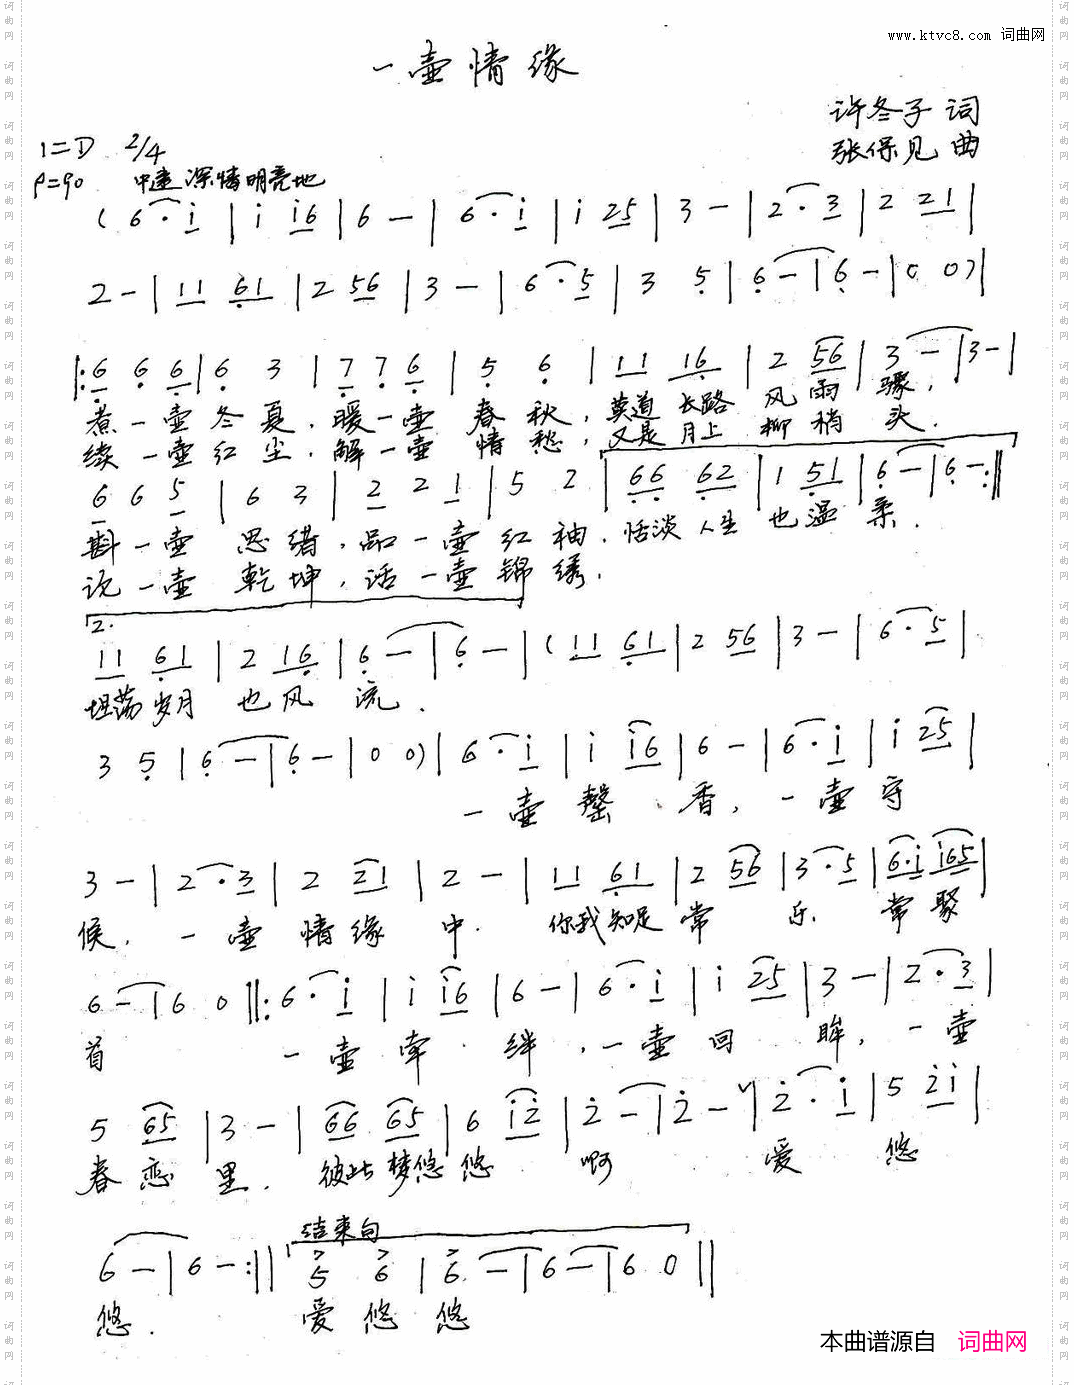 www.ktvc8.com 词曲网
一壶情缘
许冬子 词
张保见 曲
1=D 2/4
♩=90 中速 深情明亮地
( 6· i | i i6 | 6 - | 6· i | i 25 | 3 - | 2· 3 | 2 21 |
2 - | 11 61 | 2 56 | 3 - | 6· 5 | 3 5 | 6 - | 6 - | 0 0) |
|: 6 6 6 | 6 3 | 7 7 6 | 5 6 | 11 16 | 2 56 | 3 - | 3 - |
煮一壶冬夏,暖一壶春秋,莫道长路风雨骤,
续一壶红尘,解一壶情愁,又是月上柳梢头.
6 6 5 | 6 3 | 2 2 1 | 5 2 | 66 62 | 1 51 | 6 - | 6 - :||
斟一壶思绪,品一壶红袖,恬淡人生也温柔.
沏一壶乾坤,话一壶锦绣.
2.
11 61 | 2 16 | 6 - | 6 - | ( 11 61 | 2 56 | 3 - | 6· 5 |
坦荡岁月也风流.
3 5 | 6 - | 6 - | 0 0) | 6· i | i i6 | 6 - | 6· i | i 25 |
一壶馨香,一壶守
3 - | 2· 3 | 2 21 | 2 - | 11 61 | 2 56 | 3· 5 | 6·i i65 |
候,一壶情缘中.你我知足常乐.常聚
6 - | 6 0 ||: 6· i | i i6 | 6 - | 6· i | i 25 | 3 - | 2· 3 |
首 一壶牵绊,一壶回眸,一壶
5 65 | 3 - | 66 65 | 6 i2 | 2 - | 2 - | 2· i | 5 2i |
春恋里.彼此梦悠悠 啊 爱悠
6 - | 6 - :|| 5 6 | 6 - | 6 - | 6 0 ||
结束句
悠. 爱悠悠
本曲谱源自 词曲网